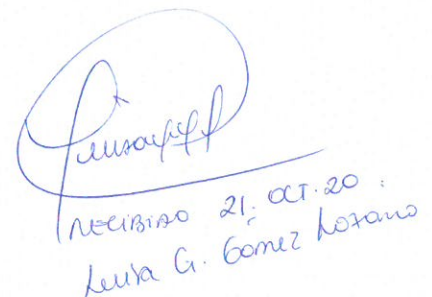 RECIBIDO 21. OCT. 20.
Luisa G. Gómez Lozano